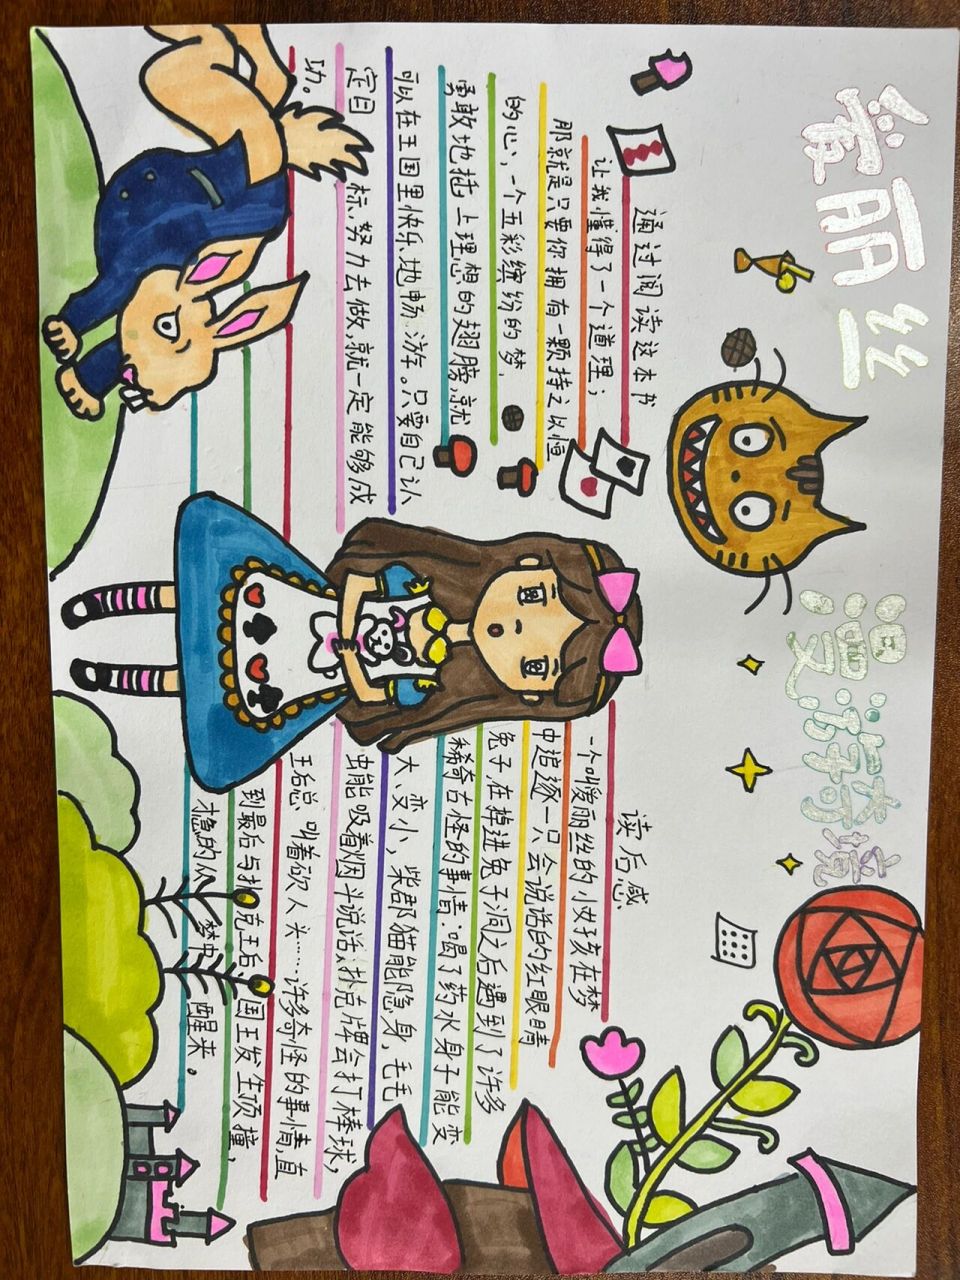 爱丽丝 漫游奇境
通过阅读这本书
让我懂得了一个道理；
那就是只要你拥有一颗持之以恒
的心，一个五彩缤纷的梦，
勇敢地插上理想的翅膀，就
可以在王国里快乐地畅游。只要自己认
定目标，努力去做，就一定能够成
功。
读后感
一个叫爱丽丝的小好孩在梦
中追逐一只会说话的红眼睛
兔子在掉进兔子洞之后遇到了许多
稀奇古怪的事情：喝了药水身子能变
大、变小，柴郡猫能隐身，毛毛
虫能吸着烟斗说话，扑克牌会打棒球，
王后总叫着砍人头……许多奇怪的事情，直
到最后与扑克王后、国王发生顶撞，
才急的从梦中醒来。